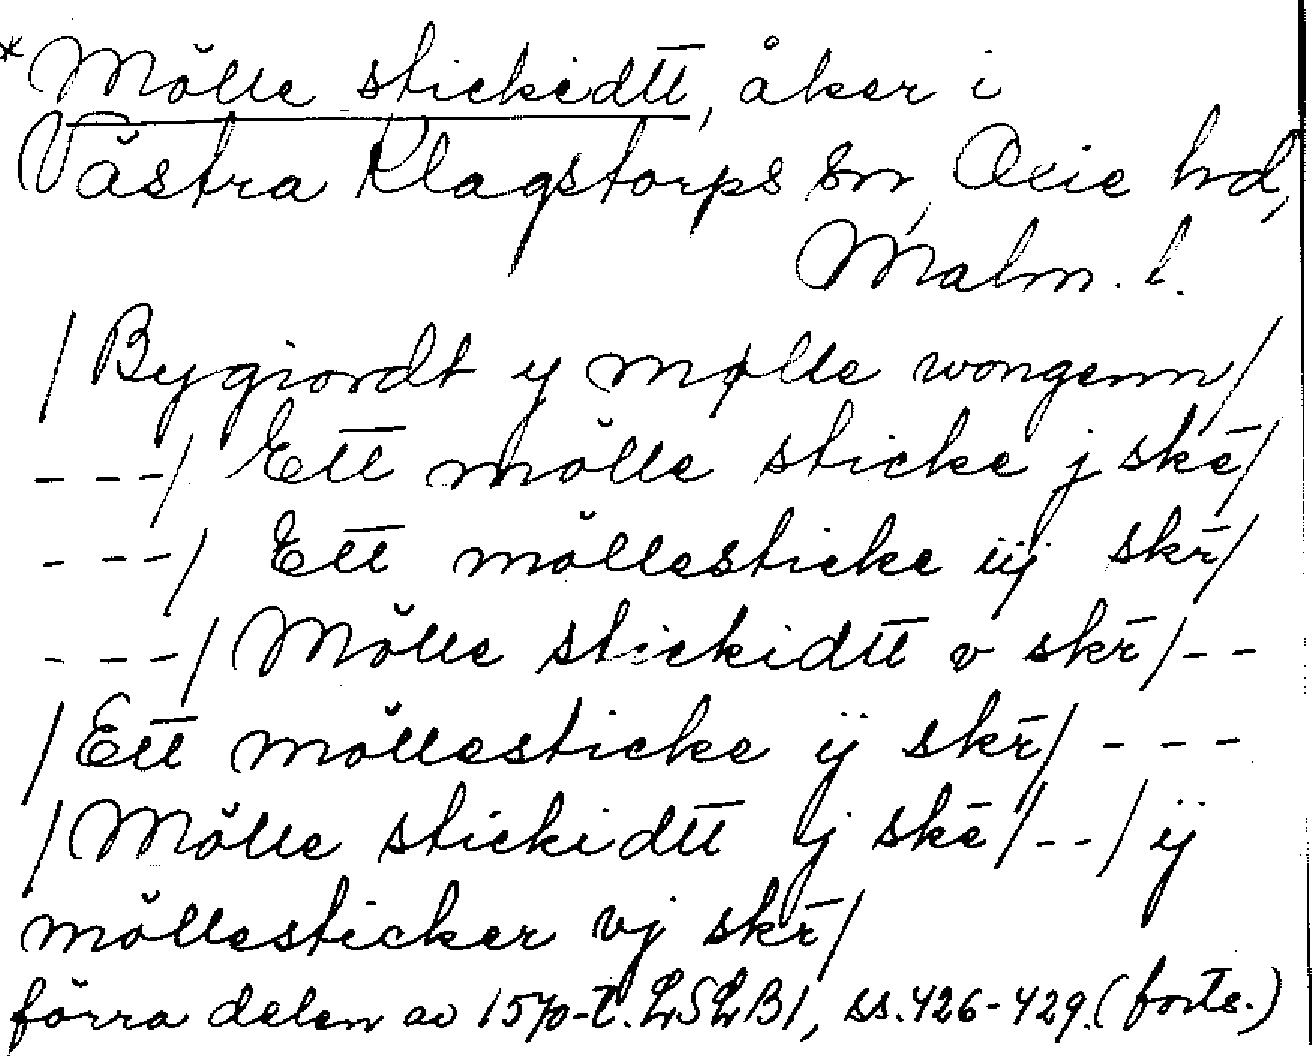 *Mölle stickidtt, åker i
Västra Klagstorps sn, Oxie hd,
Malm. l.
/ Bygiordt y mølle wongenn/
---/ Ett mölle sticke j skē/
---/ Ett möllesticke iij skr̄/
---/ Mölle stickidtt v skr̄/--
/Ett möllesticke ij skr̄/ ---
/Mölle stickidtt j skē/--/ ij
möllesticker vj skr̄/
förra delen av 1570-t. LSLB1, ss. 426-429. (forts.)